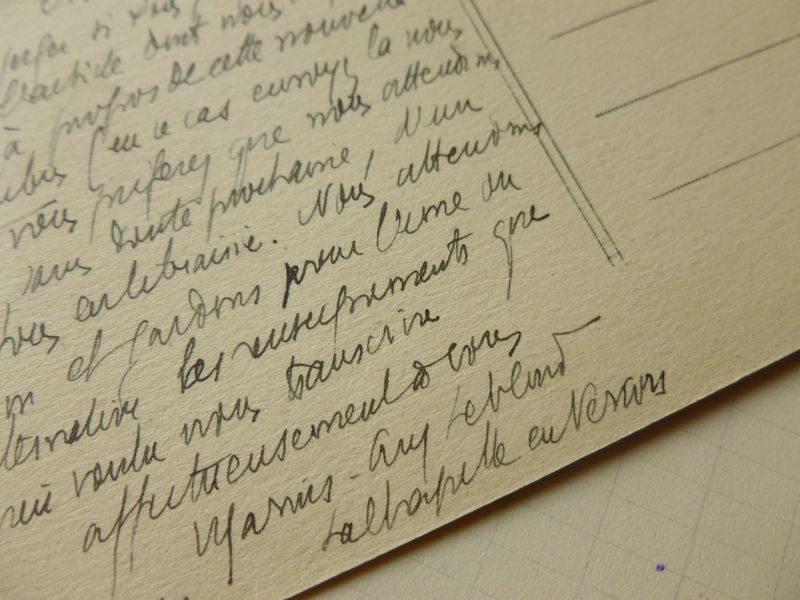 si vous
l'article dont nous
à propos de cette nouvelle
en ce cas envoyez la nous
vous préférez que nous attendions
sans doute prochaine, d'un
en librairie. Nous attendons
et gardons pour l'une ou
les renseignements que
voulu nous transcrire
affectueusement à vous
Marius-Ary Leblond
La Chapelle en Vercors